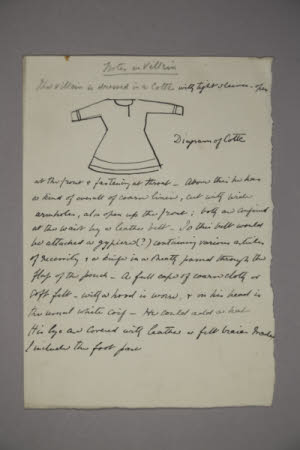 Notes on Villein
The Villein is dressed in a Cotte with tight sleeves - open
Diagram of Cotte
at the front & fastening at throat - Above this he has
a kind of overall of coarse linen, cut with wide
armholes, also open up the front; both are confined
at the waist by a leather belt - To this belt would
be attached a gypciere (?) containing various articles
of necessity & a knife in a sheath passed through the
flap of the pouch - A full cape of coarse cloth or
soft felt - with a hood is worn, & on his head is
the usual white coif - He could add a hat
His legs are covered with leather or felt
& include the foot part